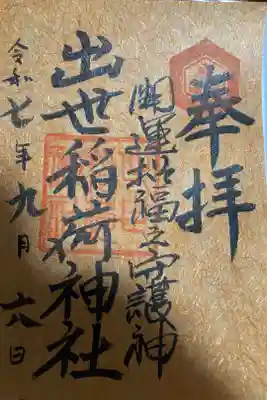 奉拝
開運招福之守護神
出世稲荷神社
令和七年九月
六日